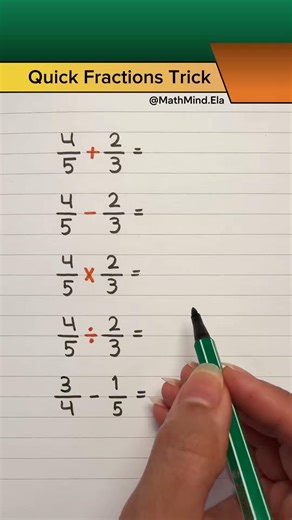 Quick Fractions Trick
@MathMind.Ela
4/5 + 2/3 =
4/5 - 2/3 =
4/5 x 2/3 =
4/5 ÷ 2/3 =
3/4 - 1/5 =